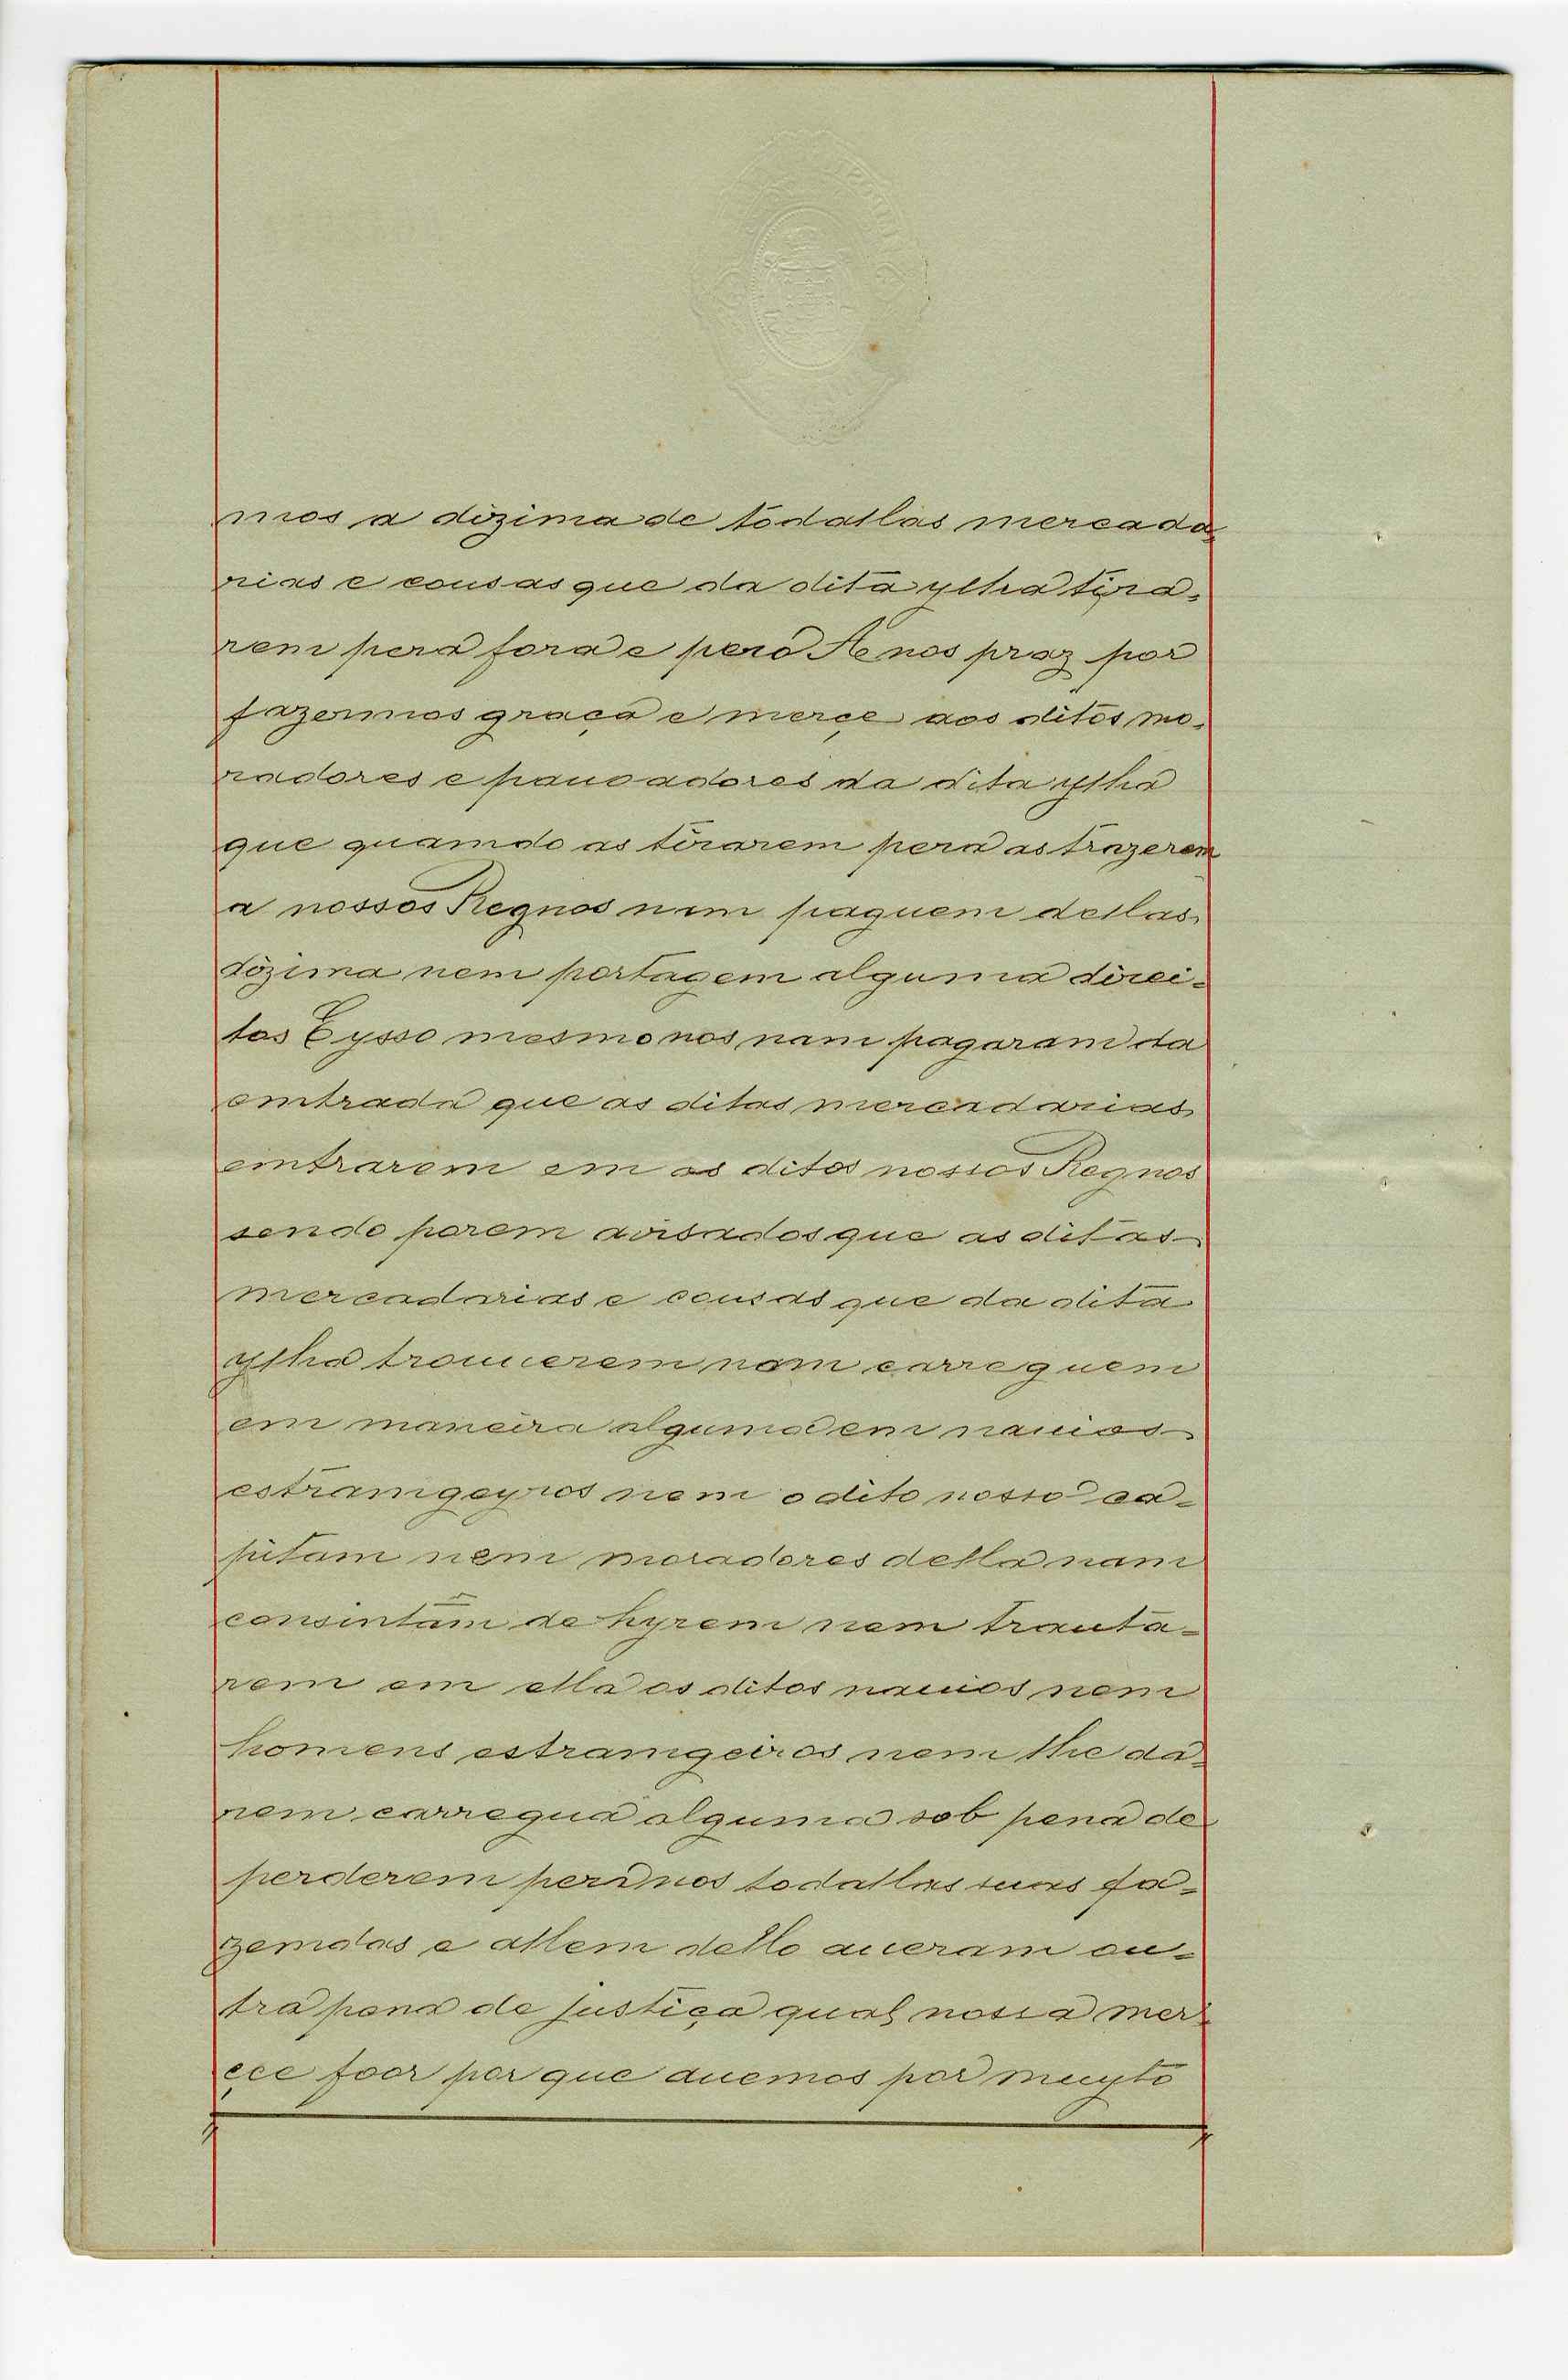 mos a dizima de todallas mercada-
rias e cousas que da dita ylha tira-
rem pera fora e pero Ae nos praz por
fazermos graça e merçe aos ditos mo-
radores e pauoadores da dita ylha
que quamdo as tirarem pera as trazerem
a nossos Regnos nam paguem dellas
dizima nem portagem alguma direi-
tos E ysso mesmo nos nam pagaram da
emtrada que as ditas mercadarias
emtrarem em os ditos nossos Regnos
sendo porem avisados que as ditas
mercadarias e cousas que da dita
ylha trouuerem nam carreguem
em maneira alguma em nauios
estramgeyros nem o dito nosso ca-
pitam nem moradores della nam
consintam de hyrem nem trauta-
rem em ella os ditos nauios nem
homens estramgeiros nem lhe da-
rem carregua alguma sob pena de
perderem pera nos todallas suas fa-
zemdas e allem dello aueram ou-
tra pena de justiça qual nossa mer-
çee foor por que auemos por muyto